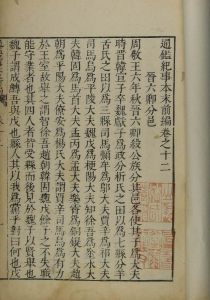 通鑑紀事本末前編卷之十二
晉六卿分邑
周敬王六年秋晉六卿殺公族分其邑各使其子為大夫
時晉韓宣子卒魏獻子為政分祁氏之田以為七縣分羊
舌氏之田以為三縣司馬彌牟為鄔大夫賈辛為祁大夫
司馬烏為平陵大夫魏戊為梗陽大夫知徐吾為塗水大
夫韓固為馬首大夫孟丙為盂大夫樂霄為銅鞮大夫趙
朝為平陽大夫僚安為楊氏大夫謂賈辛司馬烏為有力
於王室故舉之謂知徐吾趙朝韓固魏戊餘子之不失職
能守業者也其四人者皆受縣而後見於魏子以賢舉也
魏子謂成鱄吾與戊也縣人其以我為黨乎對曰何也戊